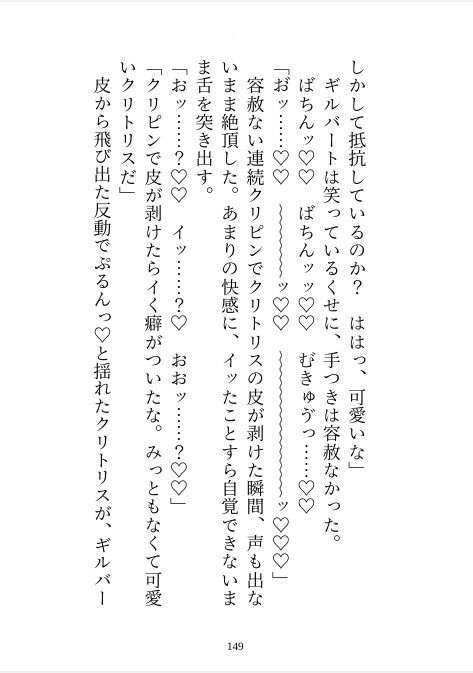 しかして抵抗しているのか？　ははっ、可愛いな」
　ギルバートは笑っているくせに、手つきは容赦なかった。
　ばちんッ♡♡　ばちんッッ♡♡　むきゅゔっ……♡♡
「お゙ッ……♡♡　〜〜〜〜ッ♡♡　〜〜〜〜〜〜〜〜ッ♡♡♡」
　容赦ない連続クリピンでクリトリスの皮が剥けた瞬間、声も出な
いまま絶頂した。あまりの快感に、イッたことすら自覚できないま
ま舌を突き出す。
「おッ……？♡♡　イッ……？♡　おおッ……？♡♡」
「クリピンで皮が剥けたらイく癖がついたな。みっともなくて可愛
いクリトリスだ」
　皮から飛び出た反動でぷるんっ♡と揺れたクリトリスが、ギルバー
149